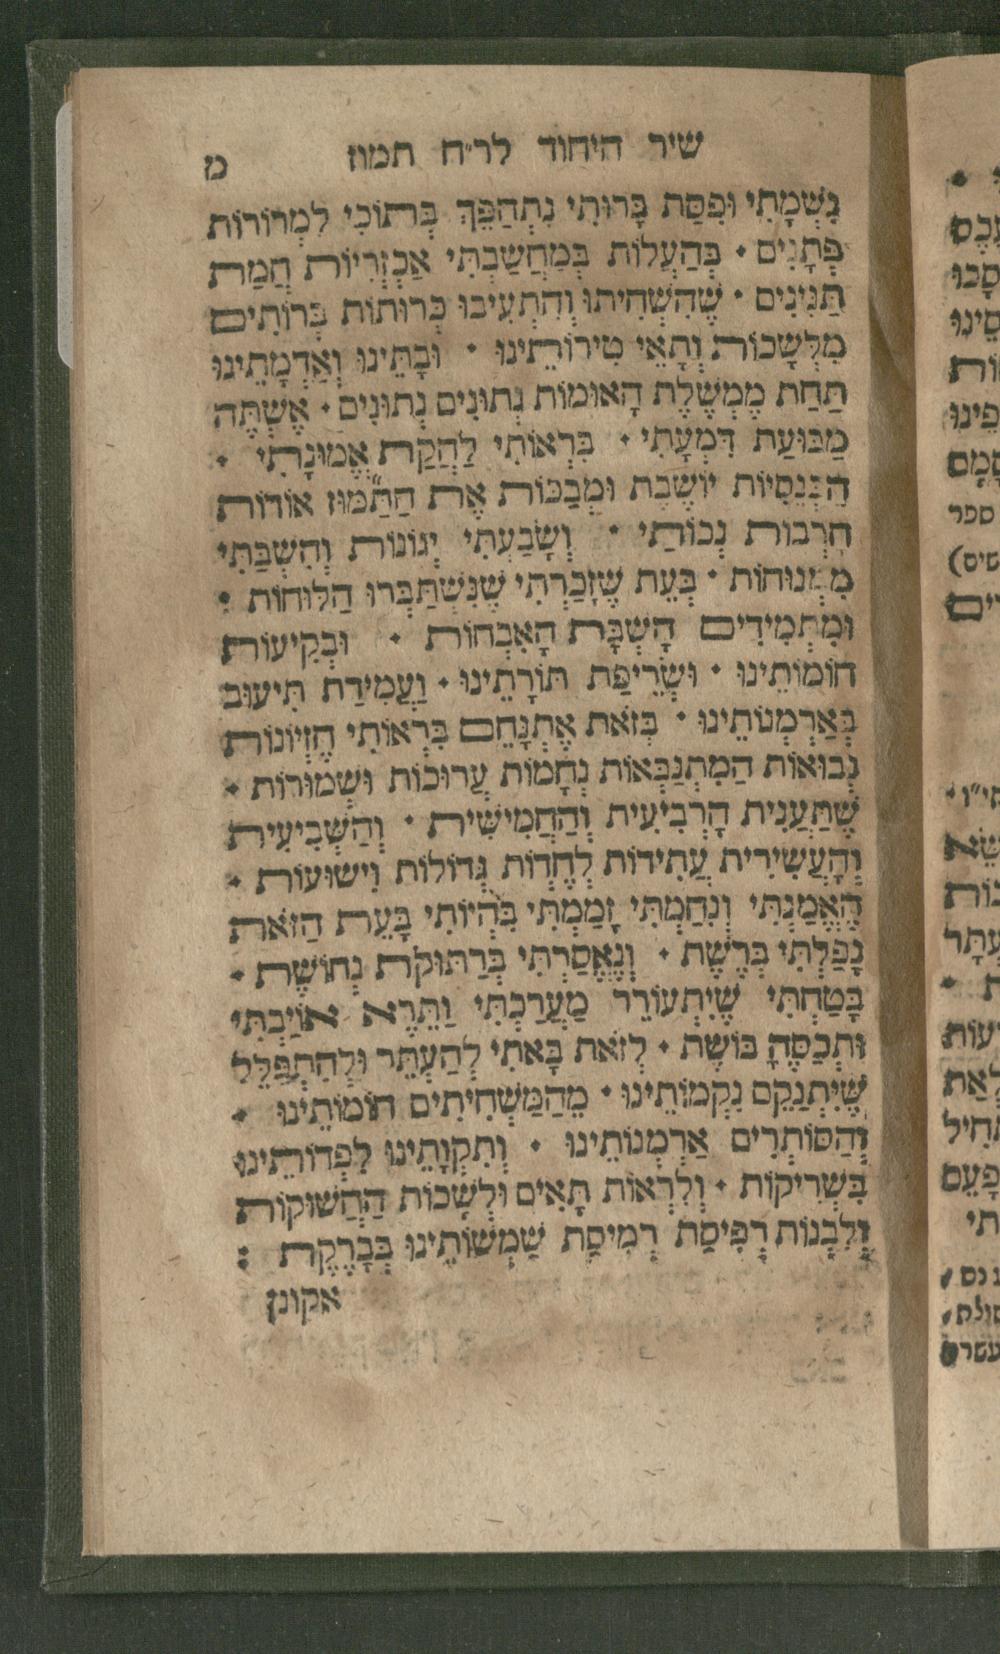 שיר היחוד לר״ח תמוז מ
נִשְׁמָתִי וּפִסַּת בָּרוּתִי נִתְהַפֵּךְ בְּתוֹכִי לִמְרוֹרוֹת
פְּתָנִים · בְּהַעֲלוֹת בְּמַחֲשַׁבְתִּי אַכְזְרִיּוֹת חֲמַת
תַּנִּינִים · שֶׁהִשְׁחִיתוּ וְהִתְעִיבוּ כְּרוּתוֹת בְּרוֹתִים
מִלְּשָׁכוֹת וְתָאֵי טִירוֹתֵינוּ · וּבָתֵּינוּ וְאַדְמָתֵינוּ
תַּחַת מֶמְשֶׁלֶת הָאוּמוֹת נְתוּנִים נְתוּנִים · אֶשְׁתֶּה
מַבּוּעַת דִּמְעָתִי · בִּרְאוֹתִי לַהֲקַת אֱמוּנָתִי ·
הַכְּנֵסִיּוֹת יוֹשֶׁבֶת וּמְבַכּוֹת אֶת הַתַּמּוּז אוֹדוֹת
חֻרְבוֹת נְכוֹתַי · וְשָׂבַעְתִּי יְגוֹנוֹת וְהִשְׁבַּתִּי
מִמְּנוּחוֹת · בְּעֵת שֶׁזָּכַרְתִּי שֶׁנִּשְׁתַּבְּרוּ הַלּוּחוֹת :
וּמִתְמִידִים הָשְׁבָּת הָאִבְחוֹת · וּבְקִיעוֹת
חוֹמוֹתֵינוּ · וּשְׂרֵיפַת תּוֹרָתֵינוּ · וַעֲמִידַת תִּיעוּב
בְּאַרְמְנוֹתֵינוּ · בְּזֹאת אֶתְנָחֵם בִּרְאוֹתִי חֶזְיוֹנוֹת
נְבוּאוֹת הַמִּתְנַבְּאוֹת נְחָמוֹת עֲרוּכוֹת וּשְׁמוּרוֹת ·
שֶׁתַּעֲנִית הָרְבִיעִית וְהַחֲמִישִׁית · וְהַשְּׁבִיעִית
וְהָעֲשִׂירִית עֲתִידוֹת לְחֶדְוֹת גְּדוֹלוֹת וִישׁוּעוֹת ·
הֶאֱמַנְתִּי וְנִחַמְתִּי זָמַמְתִּי בִּהְיוֹתִי בָּעֵת הַזֹּאת
נָפַלְתִּי בְּרֶשֶׁת · וְנֶאֱסַרְתִּי בְּרַתּוּקַת נְחוֹשֶׁת ·
בָּטַחְתִּי שֶׁיִּתְעוֹרֵר מַעֲרַכְתִּי וְתֵרֶא אוֹיַבְתִּי
וּתְכַסֶּהָ בּוֹשֶׁת · לְזֹאת בָּאתִי לְהַעְתֵּר וּלְהִתְפַּלֵּל
שֶׁיִּתְנַקֵּם נִקְמוֹתֵינוּ · מֵהַמַּשְׁחִיתִים חוֹמוֹתֵינוּ ·
וְהַסּוֹתְרִים אַרְמְנוֹתֵינוּ · וְתִקְוָתֵינוּ לִפְדוֹתֵינוּ
בִּשְׁרִיקוֹת · וְלִרְאוֹת תָּאִים וּלְשָׁכוֹת הַחֲשׁוּקוֹת
וְלִבְנוֹת רְפִיסַת רְמִיסַת שִׁמְשׁוֹתֵינוּ בְּבָרֶקֶת :
אקונן